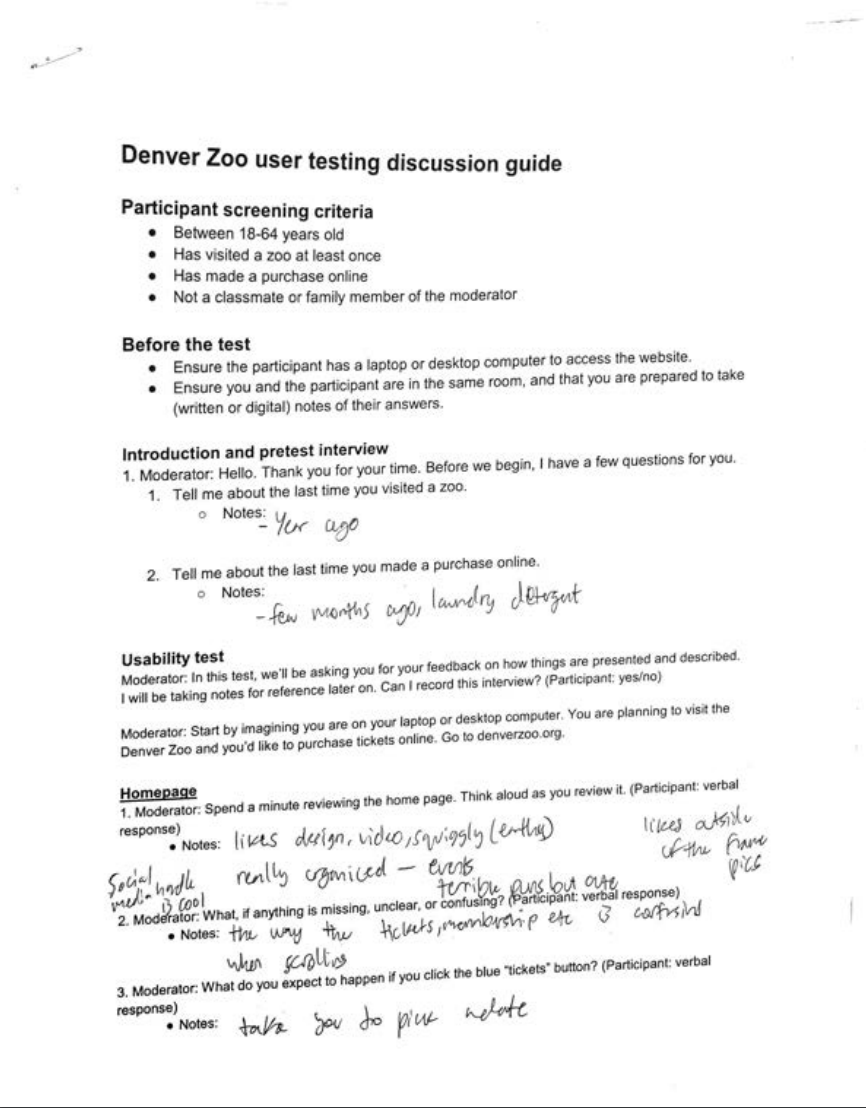 Denver Zoo user testing discussion guide
Participant screening criteria
● Between 18-64 years old
● Has visited a zoo at least once
● Has made a purchase online
● Not a classmate or family member of the moderator
Before the test
● Ensure the participant has a laptop or desktop computer to access the website.
● Ensure you and the participant are in the same room, and that you are prepared to take
(written or digital) notes of their answers.
Introduction and pretest interview
1. Moderator: Hello. Thank you for your time. Before we begin, I have a few questions for you.
1. Tell me about the last time you visited a zoo.
○ Notes:
- Year ago
2. Tell me about the last time you made a purchase online.
○ Notes:
- few months ago, laundry detergent
Usability test
Moderator: In this test, we'll be asking you for your feedback on how things are presented and described.
I will be taking notes for reference later on. Can I record this interview? (Participant: yes/no)
Moderator: Start by imagining you are on your laptop or desktop computer. You are planning to visit the
Denver Zoo and you'd like to purchase tickets online. Go to denverzoo.org.
Homepage
1. Moderator: Spend a minute reviewing the home page. Think aloud as you review it. (Participant: verbal
response)
• Notes: likes design, video, squiggly (earthy)
likes outside
of the frame
pics
really organized — events
terrible puns but cute
Social
media handle
is cool
2. Moderator: What, if anything is missing, unclear, or confusing? (Participant: verbal response)
• Notes: the way the tickets, membership etc is confusing
when scrolling
3. Moderator: What do you expect to happen if you click the blue "tickets" button? (Participant: verbal
response)
• Notes: take you to pick